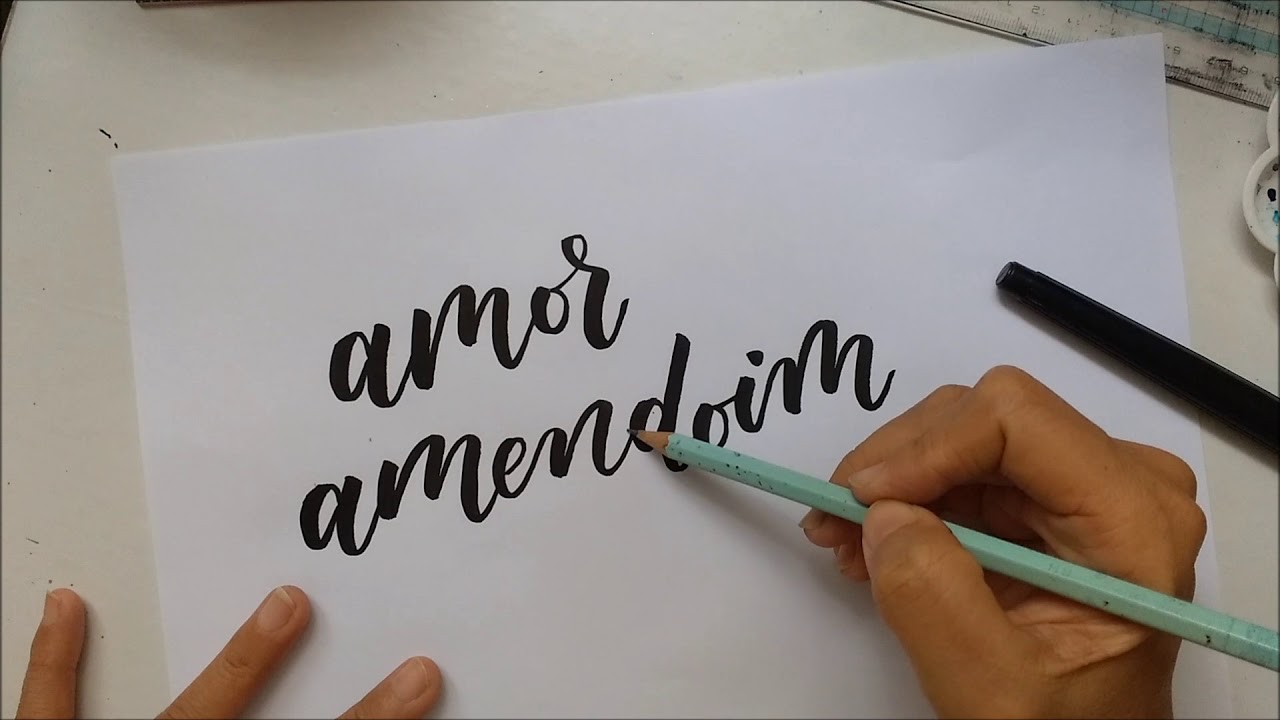 amor
amendoim